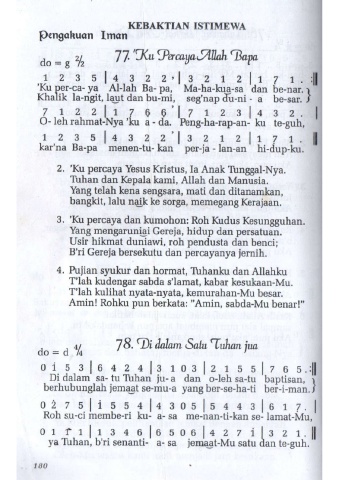 KEBAKTIAN ISTIMEWA
Pengakuan Iman
do = g 2/2
77. 'Ku Percaya Allah Bapa
1 2 3 5 | 4 3 2 2 ' 3 2 1 2 | 1 7 1 . :||
'Ku per-ca- ya Al-lah Ba- pa, Ma-ha-kua-sa dan be-nar. }
Khalik la-ngit, laut dan bu-mi, seg'nap du-ni - a be-sar. }
7 1 2 2 | 1 7 6 6 ' 7 1 2 3 | 4 3 2 .
O- leh rahmat-Nya 'ku a - da. Peng-ha-rap-an- ku te-guh,
1 2 3 5 | 4 3 2 2 ' 3 2 1 2 | 1 7 1 . ||
kar'na Bapa menen-tu- kan per-ja - lan-an hi-dup-ku.
2. 'Ku percaya Yesus Kristus, Ia Anak Tunggal-Nya.
Tuhan dan Kepala kami, Allah dan Manusia.
Yang telah kena sengsara, mati dan ditanamkan,
bangkit, lalu naik ke sorga, memegang Kerajaan.
3. 'Ku percaya dan kumohon: Roh Kudus Kesungguhan.
Yang mengaruniai Gereja, hidup dan persatuan.
Usir hikmat duniawi, roh pendusta dan benci;
B'ri Gereja bersekutu dan percayanya jernih.
4. Pujian syukur dan hormat, Tuhanku dan Allahku
T'lah kudengar sabda s'lamat, kabar kesukaan-Mu.
T'lah kulihat nyata-nyata, kemurahan-Mu besar.
Amin! Rohku pun berkata: "Amin, sabda-Mu benar!"
do = d 4/4
78. Di dalam Satu Tuhan jua
0 1 5 3 | 6 4 2 4 | 3 1 0 3 | 2 1 5 5 | 7 6 5 . :||
Di dalam sa- tu Tuhan ju-a dan o-leh sa-tu baptisan, }
berhubunglah jemaat se-mu-a yang ber-se-ha-ti ber-i-man. }
0 2 7 5 | 1 5 5 4 | 4 3 0 5 | 5 4 4 3 | 6 1 7 . |
Roh su-ci membe-ri ku- a- sa me-nan-ti-kan se-lamat-Mu,
0 1 1 1 | 1 3 4 6 | 6 5 0 6 | 4 2 7 1 | 3 2 1 . ||
ya Tuhan, b'ri senanti- a- sa jemaat-Mu satu dan te-guh.
100